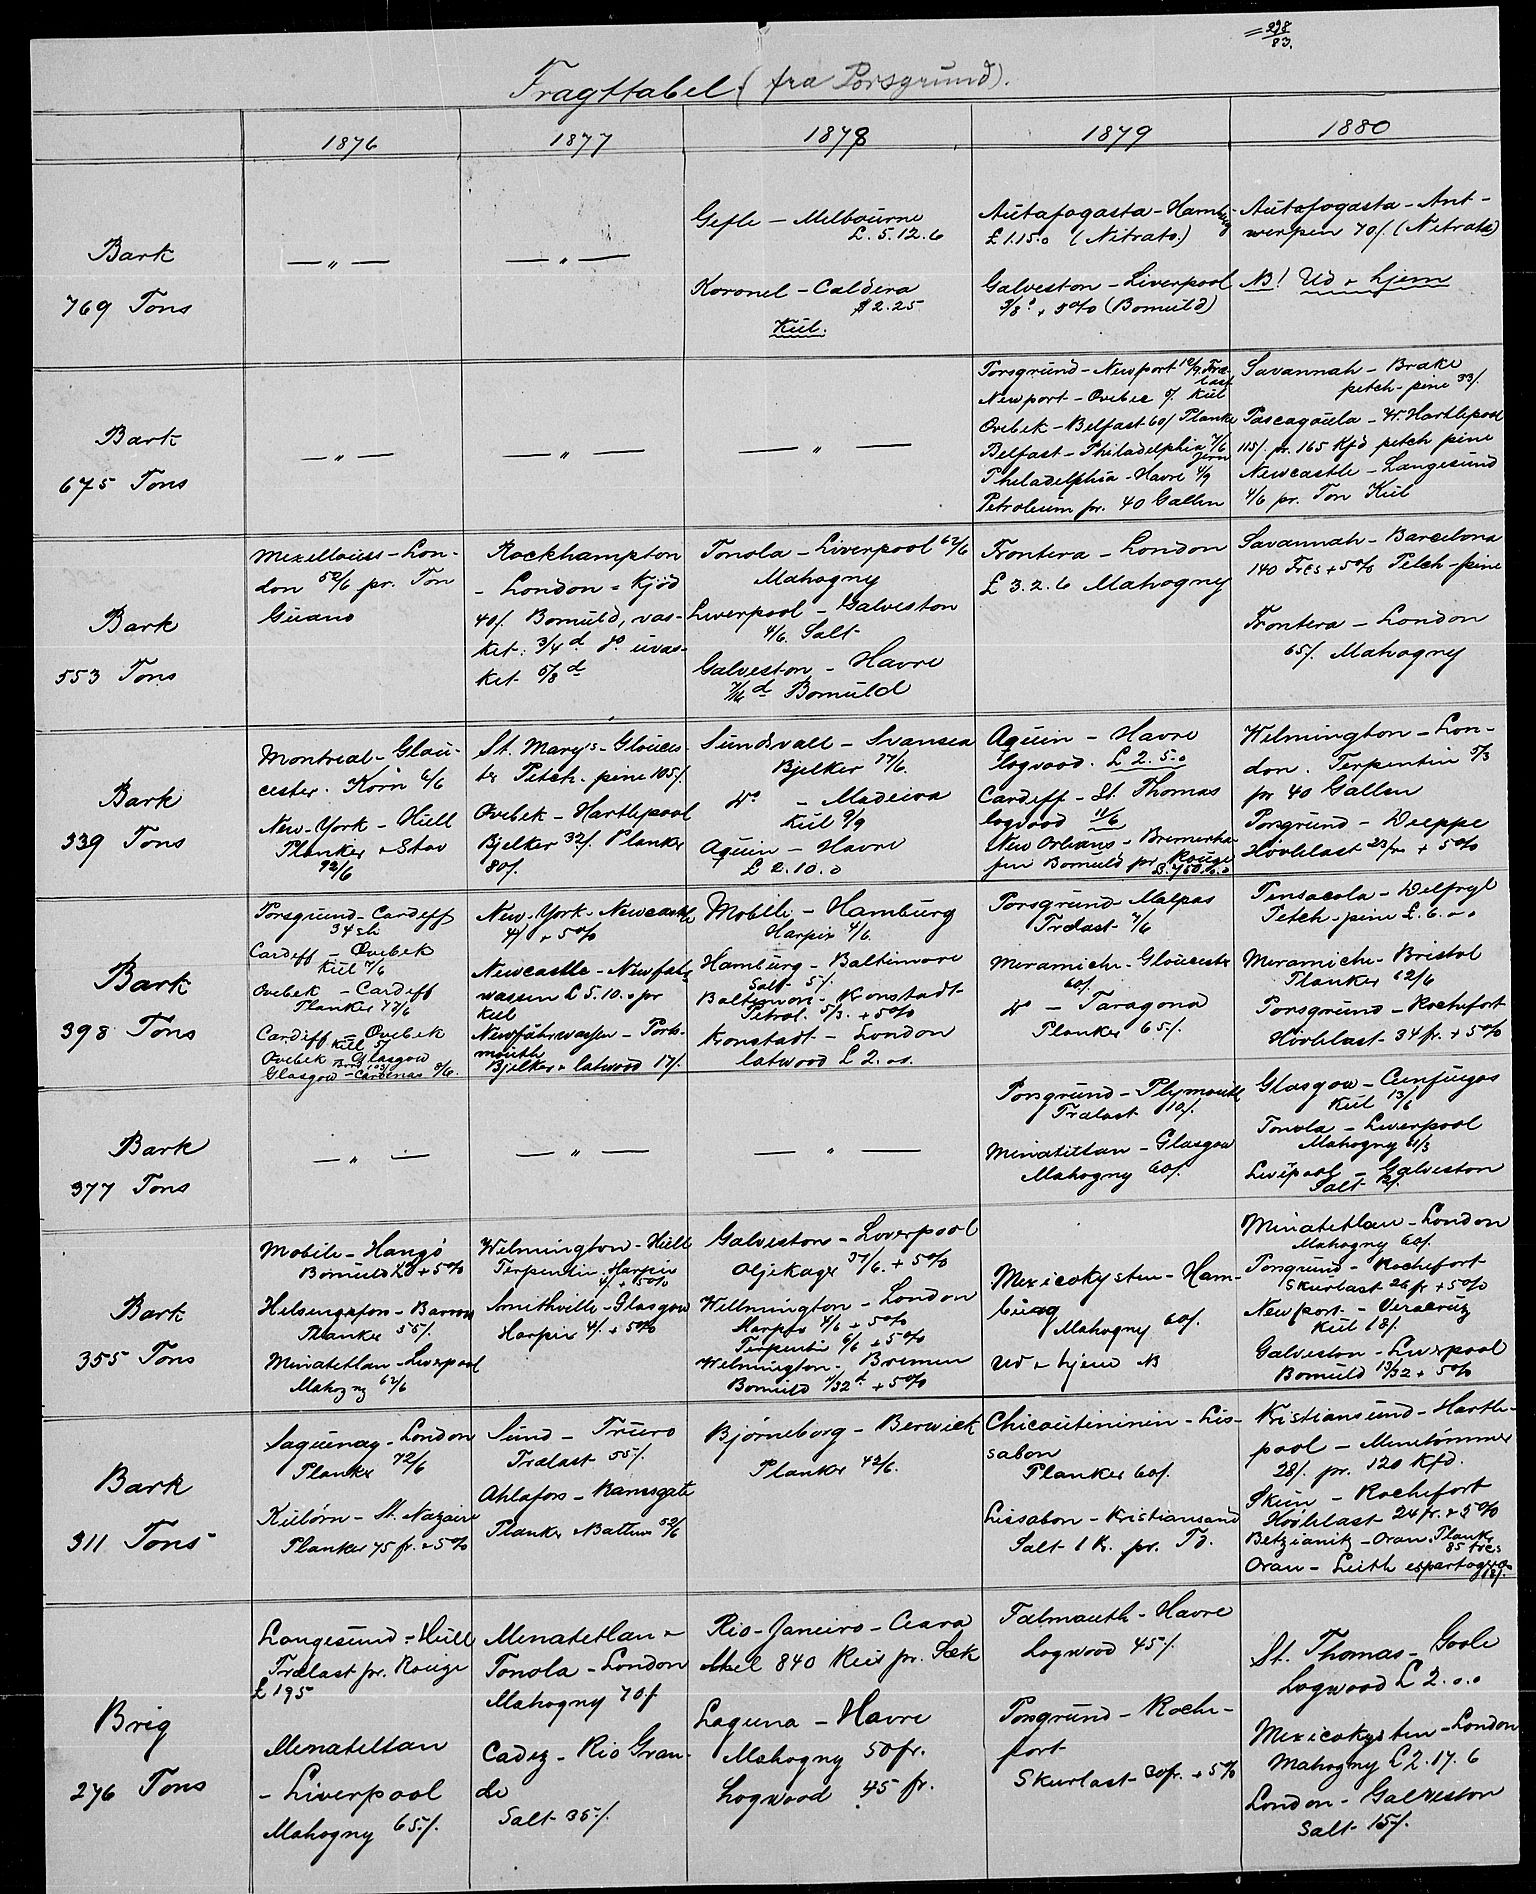 = 298/83.
Fragttabel (fra Porsgrund).
1876
1877
1878
1879
1880
Bark
769 Tons
— „ —
— „ —
Gefle – Melbourne
£. 5.12.6
Koronel – Caldera
$ 2.25
Kul.
Autafogasta – Hamburg
£ 1.15.0 (Nitrato.)
Galveston – Liverpool
3/8 d + 5% (Bomuld)
Autafogasta – Ant-
werpen 70/. (Nitrate)
NB! Ud & hjem
Bark
675 Tons
— „ —
— „ —
— „ —
Porsgrund – Newport Træ-
last
Newport – Qvebec Kul
Qvebek – Belfast 60/ Planke
Belfast – Philadelphia 7/6
Jern
Philadelphia – Havre 4/9
Petroleum pr. 40 Gallen
Savannah – Brake
pitch-pine 33/.
Pascagoula – W. Hartlepool
115/. pr. 165 Kfd pitch pine
Newcastle – Langesund
4/6 pr. Ton Kul
Bark
553 Tons
Mexillouis – Lon-
don 52/6 pr. Ton
Guano
Rockhampton
– London = Kjød
40/. Bomuld, vas-
ket: 3/4 d do uvas-
ket 5/8 d
Tonola – Liverpool 62/6
Mahogny
Liverpool – Galveston
4/6. Salt
Galveston – Havre
7/16 d Bomuld
Frontera – London
£ 3.2.6 Mahogny
Savannah – Barcelona
140 Frcs + 5% Pitch-pine
Frontera – London
65/. Mahogny
Bark
339 Tons
Montreal – Glou-
cester. Korn 6/6
New-York – Hull
Planker & Stav
92/6
St. Mary's – Glouces-
ter Pitch-pine 105/.
Qvebek – Hartlepool
Bjelker 32/. Planker
80/.
Sundsvall – Svansea
Bjelker 17/6.
do – Madeira
Kul 9/9
Aquin – Havre
£ 2.10.0
Aquin – Havre
logwood. £ 2.5.0
Cardiff – St. Thomas
logwood 11/6
New Orleans – Bremerha-
fen Bomuld pr Rouge
£. 450.0.0
Wilmington – Lon-
don. Terpentin 5/3
pr 40 Gallen
Porsgrund – Dieppe
Høvlelast 23 fr. + 5%
Bark
398 Tons
Porsgrund – Cardiff
34 sh
Cardiff – Qvebek
Kul 7/6
Qvebek – Cardiff
Planker 77/6
Cardiff – Qvebek
Kul 5/
Qvebek – Glasgow
Glasgow – Cardenas 9/6.
New-York – Newcastle
4/ + 5%
Newcastle – Newfahr-
wassen £ 5.10.0 pr
Keel
Newfahrwasser – Ports-
mouth
Bjelker & latwood 17/.
Mobile – Hamburg
Harpix 4/6.
Hamburg – Baltimore
Salt 5/.
Baltimore – Kronstadt
Petrol. 5/3. + 5%
Kronstadt – London
latwood £ 2.0.0.
Porsgrund – Malpas
Trælast 7/6
Meramichi – Gloucester
60/.
do – Taragona
Planker 65/.
Pensacola – Delfzyl
Pitch-pine £. 6.0.0
Meramichi – Bristol
Planker 62/6
Porsgrund – Rochefort
Høvlelast 34 fr. + 5%
Bark
377 Tons
— „ —
— „ —
— „ —
Porsgrund – Plymouth
Trælast 10/.
Minatitlan – Glasgow
Mahogny 60/.
Glasgow – Cunfuegos
Kul 13/6
Tonola – Liverpool
Mahogny 61/3
Livepool – Galveston
Salt 12/.
Bark
355 Tons
Mobile – Hangø
Bomuld + 5%
Helsingsfon – Barrow
Planker 55/.
Minatitlan – Liverpool
Mahogny 62/6
Wilmington – Hull
Terpentin. Harpix
4/ + 5%
Smithville – Glasgow
Harpix 4/. + 5%
Galveston – Liverpool
Oljekager 37/6. + 5%
Willmington – London
Harpix 4/6 + 5%
Terpentin 6/6 + 5%
Wilmington – Bremen
Bomuld 11/32 d + 5%
Mexicokysten – Ham-
burg
Mahogny 60/.
Ud & hjem NB
Minatetlan – London
Mahogny 60/.
Porsgrund – Rochefort
Skurlast 26 fr + 5%
Newport – Veracruz
Kul 18/.
Galveston – Liverpool
Bomuld 13/32 + 5%
Bark
311 Tons
Saguenay – London
Planker 72/6
Kulörn – St. Nazaire
Planker 75 fr. & 5%
Sund – Truro
Trælast 55/.
Ahlafors – Ramsgate
Planker & Battens 52/6
Bjørneborg – Berwick
Planker 42/6.
Chicoutininin – Lis-
sabon
Planker 60/.
Lissabon – Kristiansand
Salt 1 K. pr. Td.
Kristiansund – Hartle-
pool – Minetømmer
28/. pr. 120 Kfd.
Skien – Rochefort
Høvlelast 24 fr. & 5%
Betzianitz – Oran. Planker
85 frcs
Oran – Leith espartogræs
18/.
Brig
276 Tons
Langesund – Hull
Trælast pr. Rouge
£ 195
Menatellan
– Liverpool
Mahogny 65/.
Menatetlan &
Tonola – London
Mahogny 70/.
Cadiz – Rio Gran-
de
Salt 35/.
Rio-Janeiro – Ceara
Mel 840 Reis pr. Sæk
Laguna – Havre
Mahogny 50 fr.
Logwood 45 fr.
Falmouth – Havre
Logwood 45/.
Porsgrund – Roche-
fort
Skurlast 30 fr. + 5%
St. Thomas – Goole
Logwood £ 2.0.0
Mexicokysten – London
Mahogny £ 2.17.6
London – Galveston
Salt 15/.